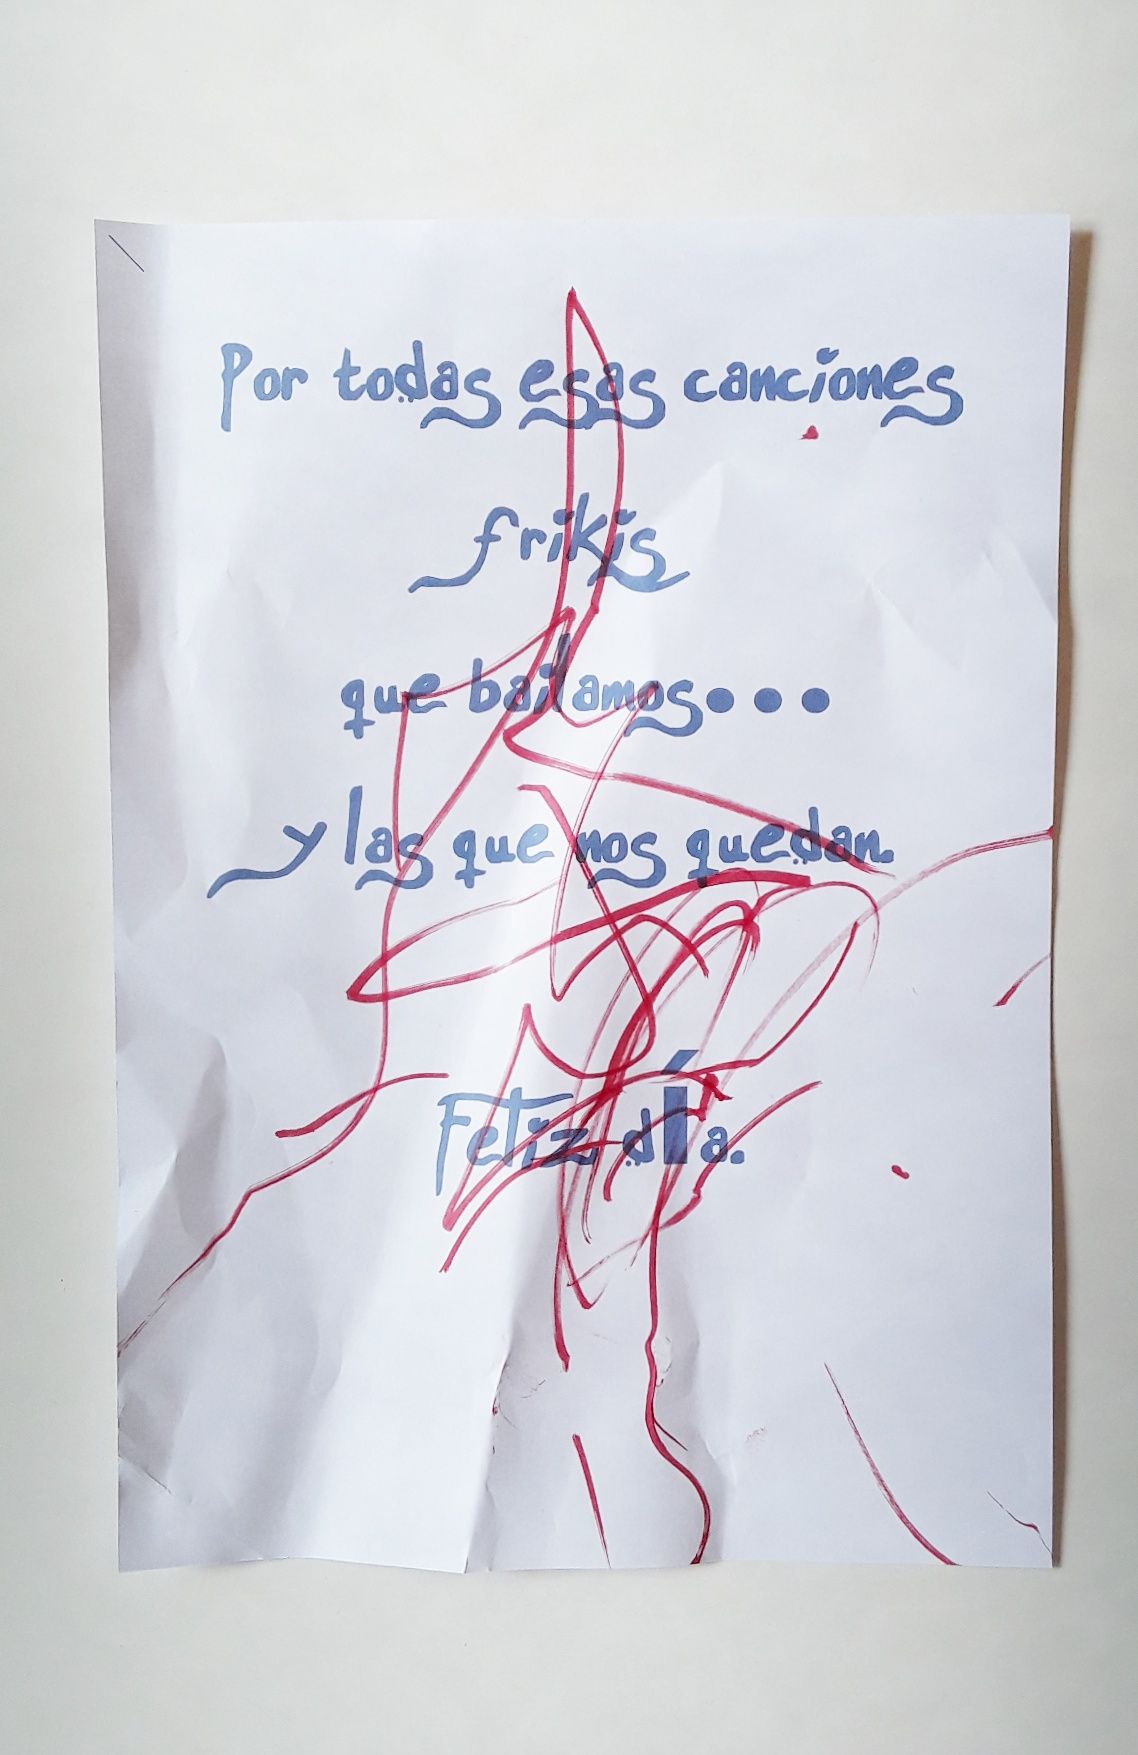 Por todas esas canciones
frikis
que bailamos...
y las que nos quedan.
Feliz día.